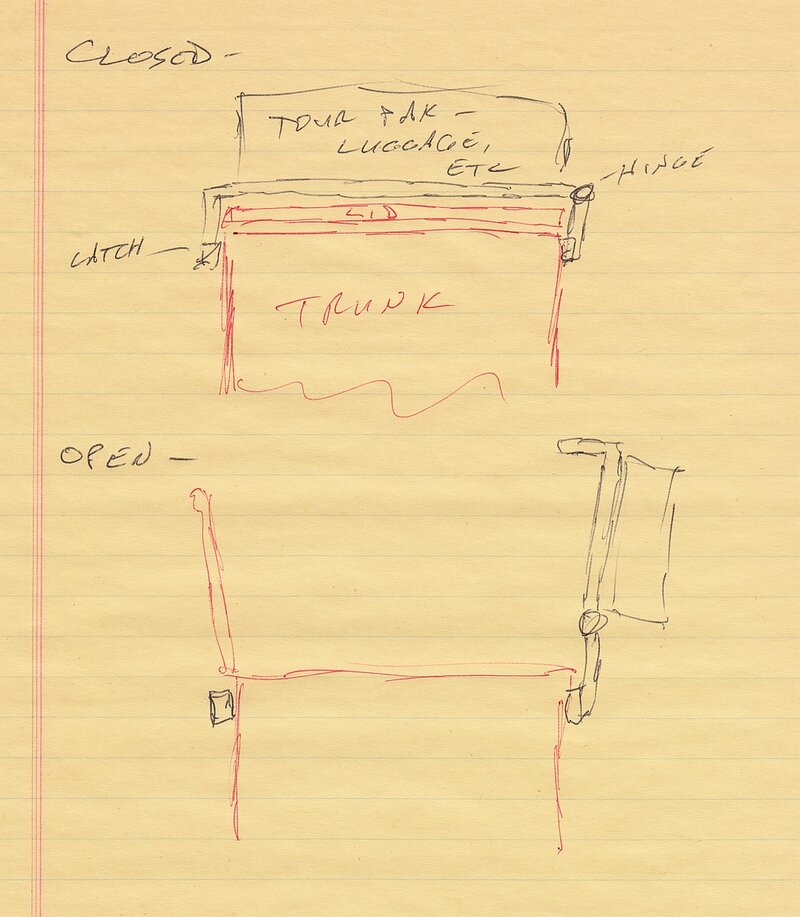 CLOSED -
TOUR PAK -
LUGGAGE,
ETC
- HINGE
LID
LATCH -
TRUNK
OPEN -